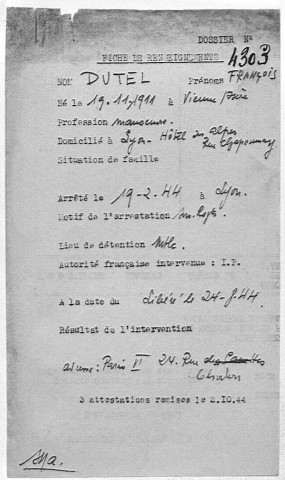 DOSSIER N°
FICHE DE RENSEIGNEMENTS 4303
NOM DUTEL Prénoms FRANÇOIS
Né le 19.11/1911 à Vienne/Isère
Profession manoeuvre.
Domicilié à Lyon - Hôtel des Alpes
Rue
Situation de famille
Arrêté le 19-2-44 à Lyon.
Motif de l'arrestation
Lieu de détention Mtlc.
Autorité française intervenue : I.P.
A la date du Libéré le 24-8-44
Résultat de l'intervention
adresse: Paris II 24. Rue
3 attestations remises le 2.10.44